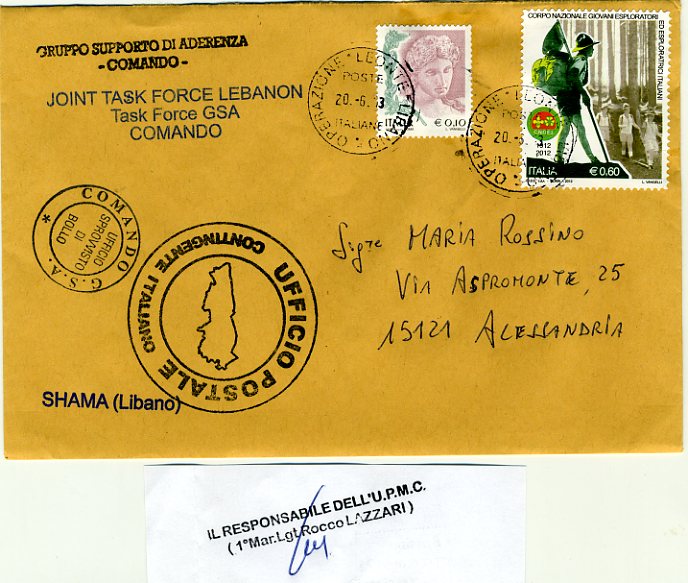 GRUPPO SUPPORTO DI ADERENZA
- COMANDO -
JOINT TASK FORCE LEBANON
Task Force GSA
COMANDO
OPERAZIONE · LEONTE · LIBANO
POSTE
20.-6. 13
ITALIANE
ITALIA € 0,10
CORPO NAZIONALE GIOVANI ESPLORATORI
ED ESPLORATRICI ITALIANI
CNGEI
1912
2012
ITALIA € 0,60
OPERAZIONE · LEONTE
20.-6.
ITALIANE
COMANDO G.S.A. *
UFFICIO
SPROVVISTO
DI
BOLLO
UFFICIO POSTALE
CONTINGENTE ITALIANO
Sig.re MARIA ROSSINO
VIA ASPROMONTE, 25
15121 ALESSANDRIA
SHAMA (Libano)
IL RESPONSABILE DELL'U.P.M.C.
( 1°Mar.Lgt.Rocco LAZZARI )